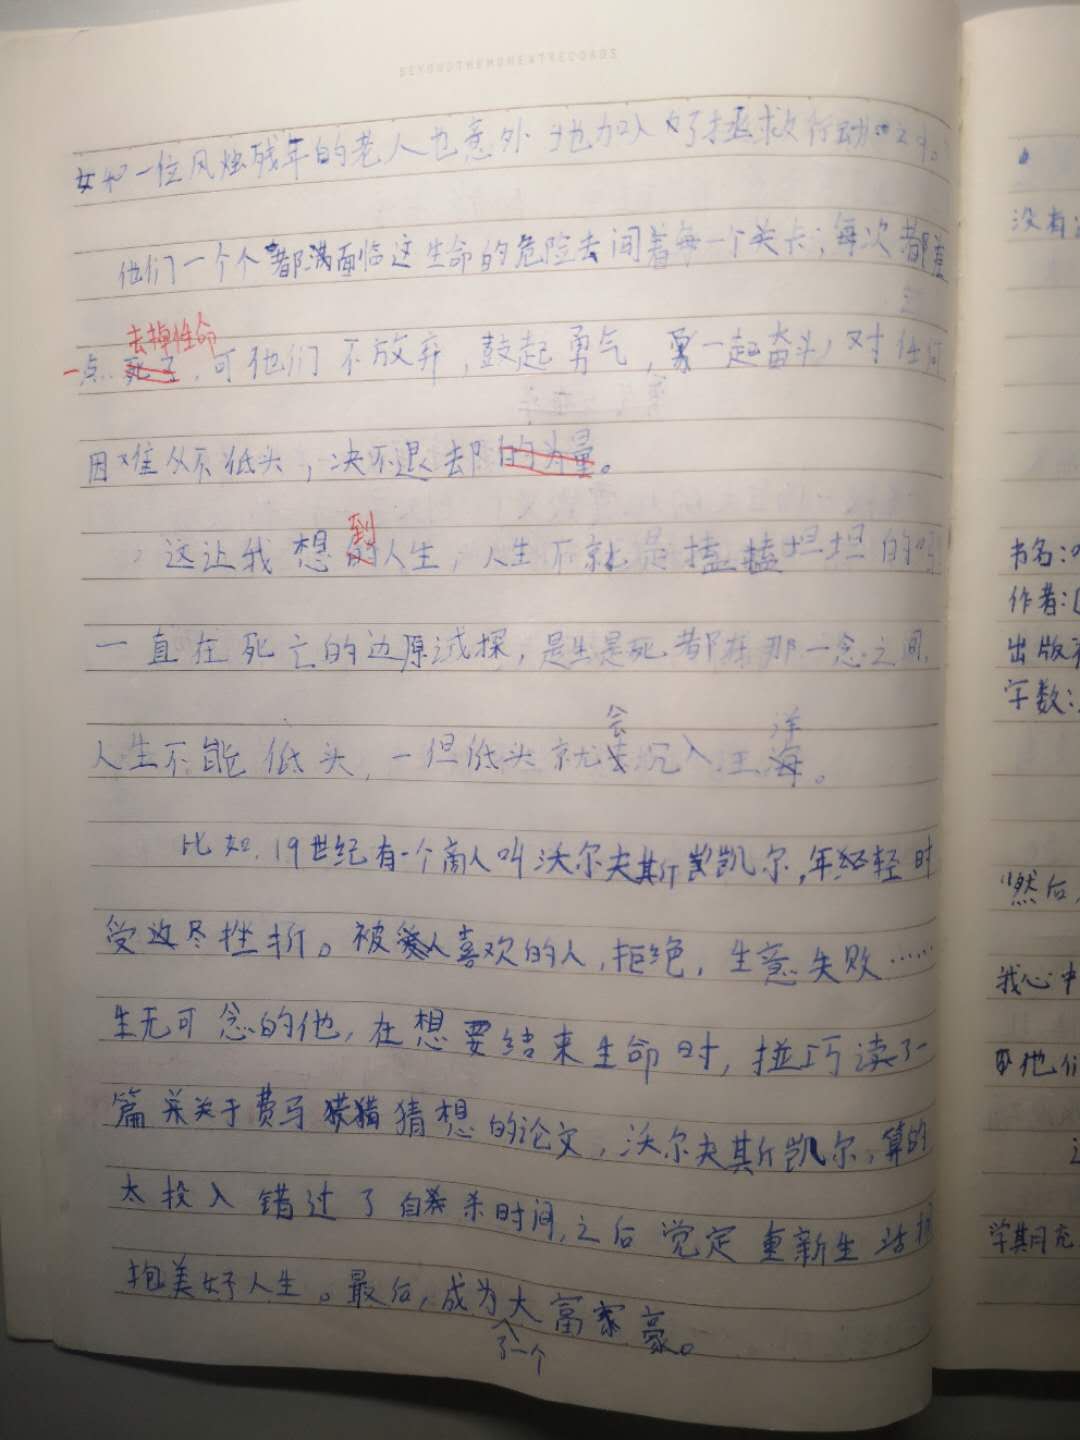 BEYONDTHEMOMENTRECORDS
女和一位风烛残年的老人也意外地加入了拯救行动
没有
他们一个个都满面临这生命的危险去闯着每一个关卡;每次都差
去掉性命
一点死了,可他们不放弃,鼓起勇气,一起奋斗,对任何
困难从不低头,决不退却的力量。
到
这让我想的人生,人生不就是磕磕坦坦的吗
书名:
作者:
一直在死亡的边原试探,是生是死都在那一念之间,
出版
字数:
会 洋
人生不能低头,一但低头就去沉入汪海。
比如,19世纪有一个商人叫沃尔夫斯凯尔,年轻时
"然后,
受尽挫折。被人喜欢的人,拒绝,生意失败……
我心中
生无可念的他,在想要结束生命时,碰巧读了一
他们
篇关于费马猜想的论文,沃尔夫斯凯尔,算的
太投入错过了自杀时间,之后觉定重新生活拥
学期
抱美好人生。最后,成为大富豪。
了一个